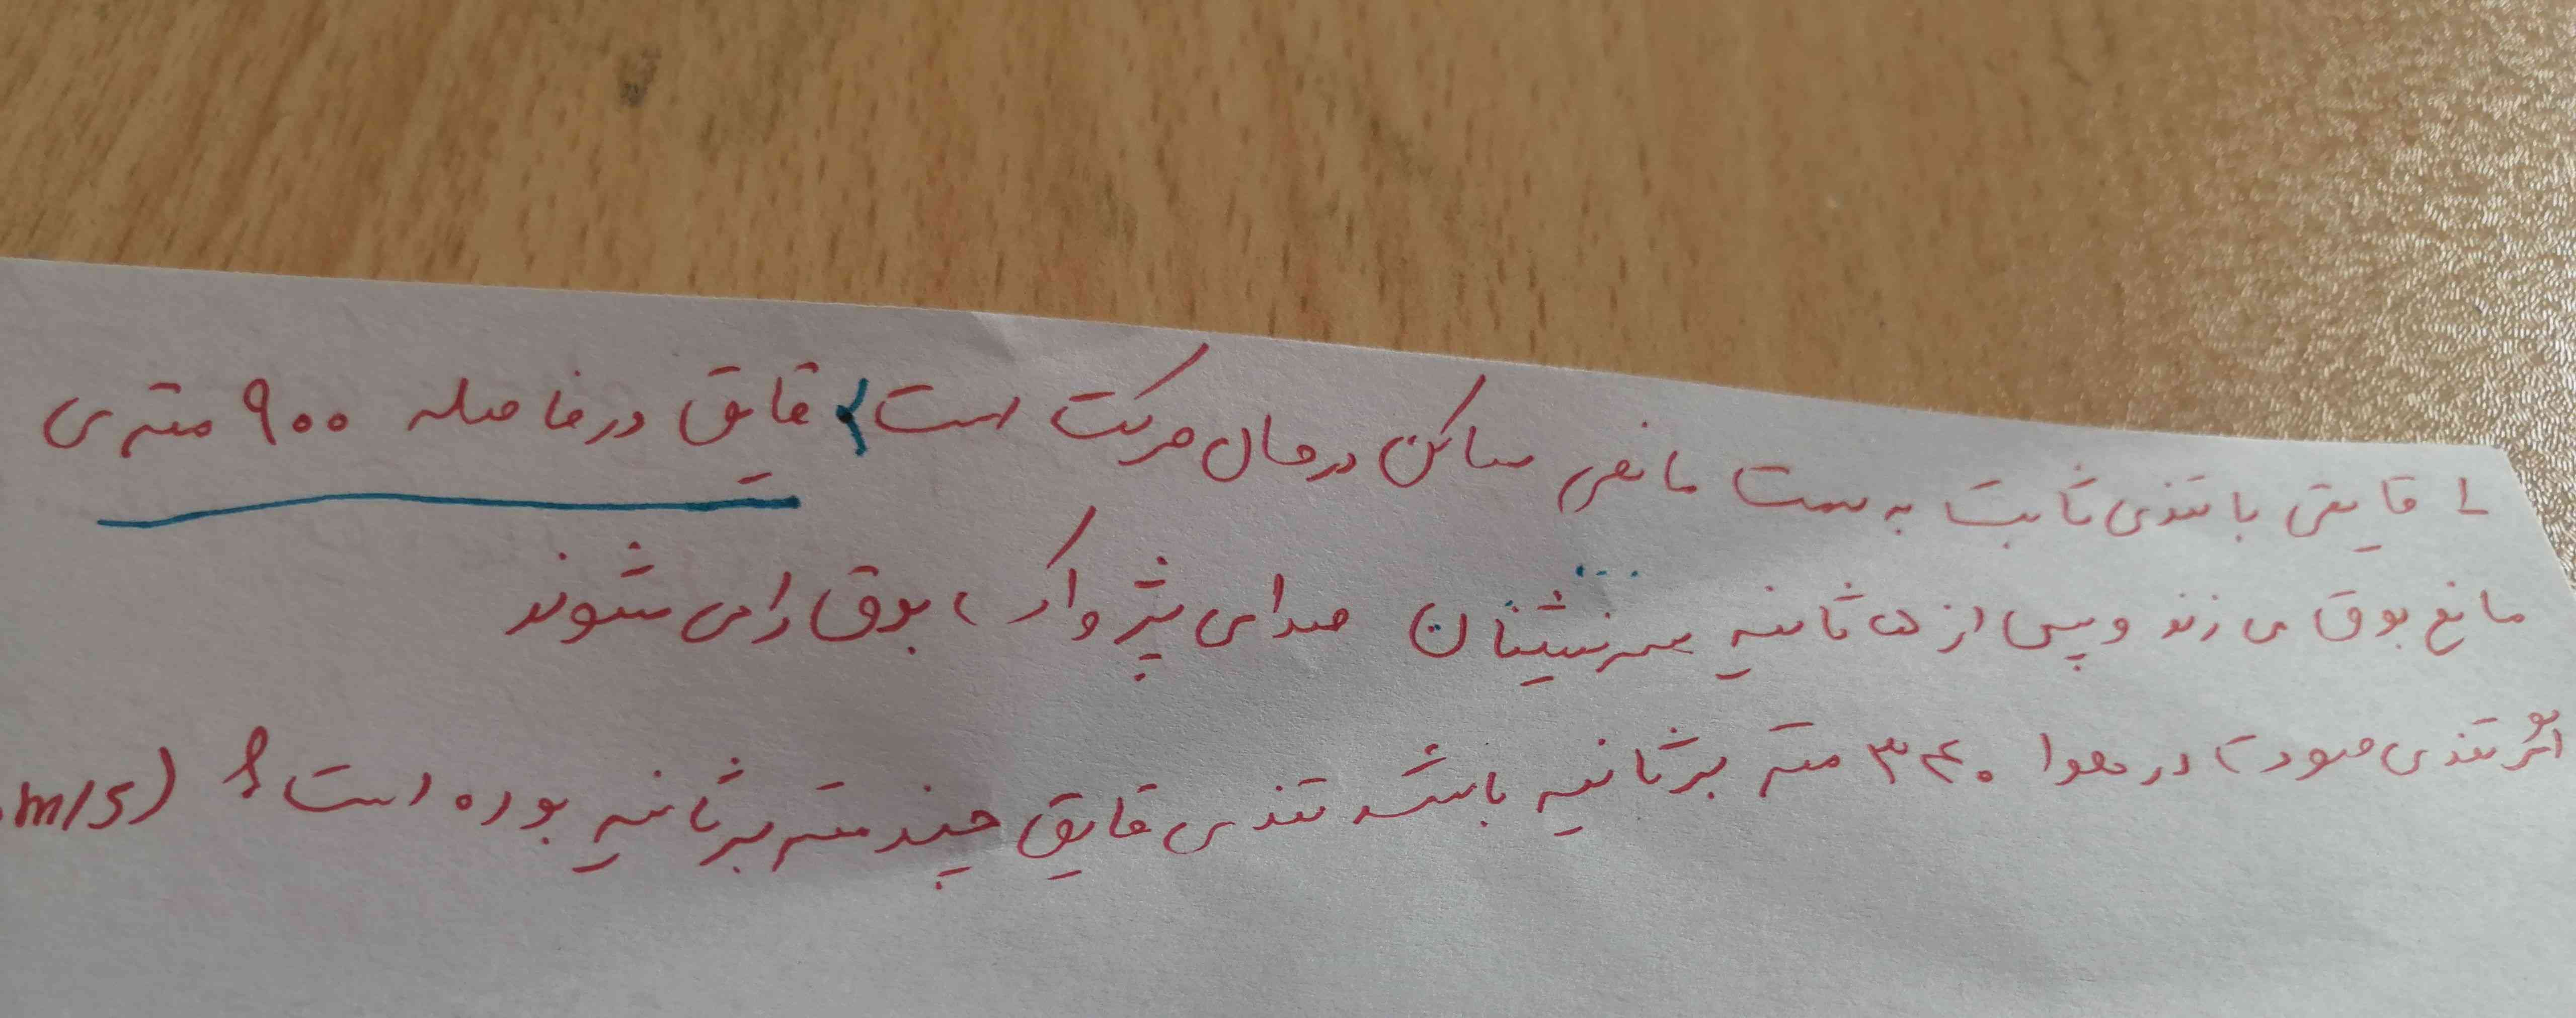 ۱_ قایقی با تندی ثابت به سمت مانعی ساکن در حال حرکت است، قایق در فاصله ۹۰۰ متری
مانع بوق می زند و پس از ۵ ثانیه سرنشینان صدای پژواک، بوق را می شوند
اگر تندی صوت در هوا ۳۴۰ متر بر ثانیه باشد تندی قایق چند متر بر ثانیه بوده است؟ (m/s